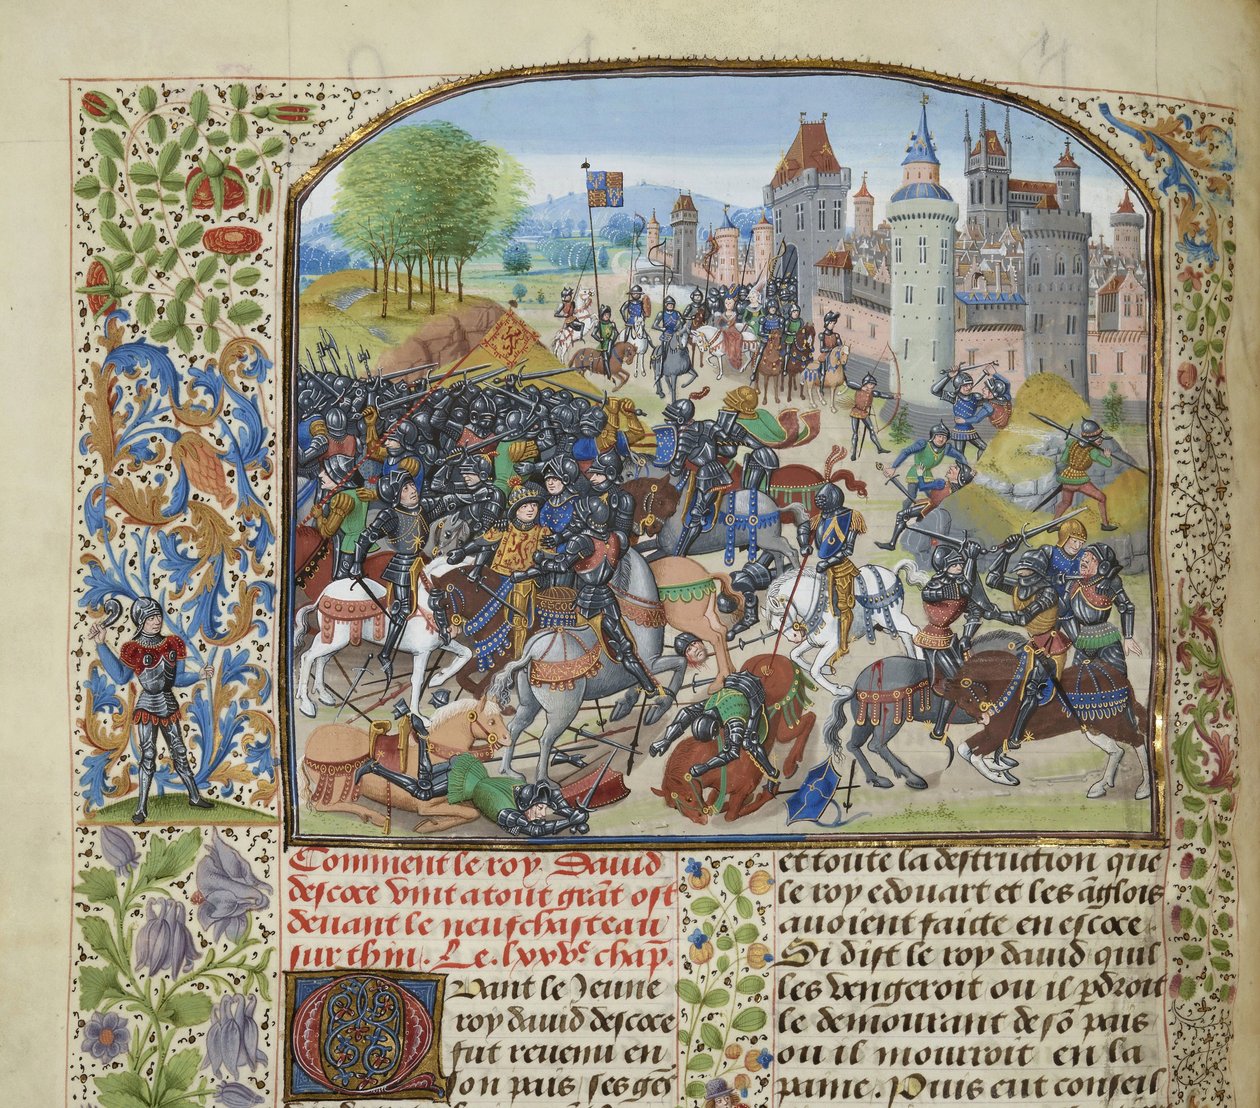 Comment le roy David
descoce vint atout grãt ost
devant le neufchasteau
sur thin. Le. lxxve chap.
Quant le Jeune
roy david descoce
fut revenu en
son pais ses gẽs
et toute la destruction que
le roy edouart et les ãglois
avoient faitte en escoce.
Si dist le roy david quil
les vengeroit ou il pdroit
le demourant de sõ pais
ou il mourroit en la
paine. Puis eut conseil